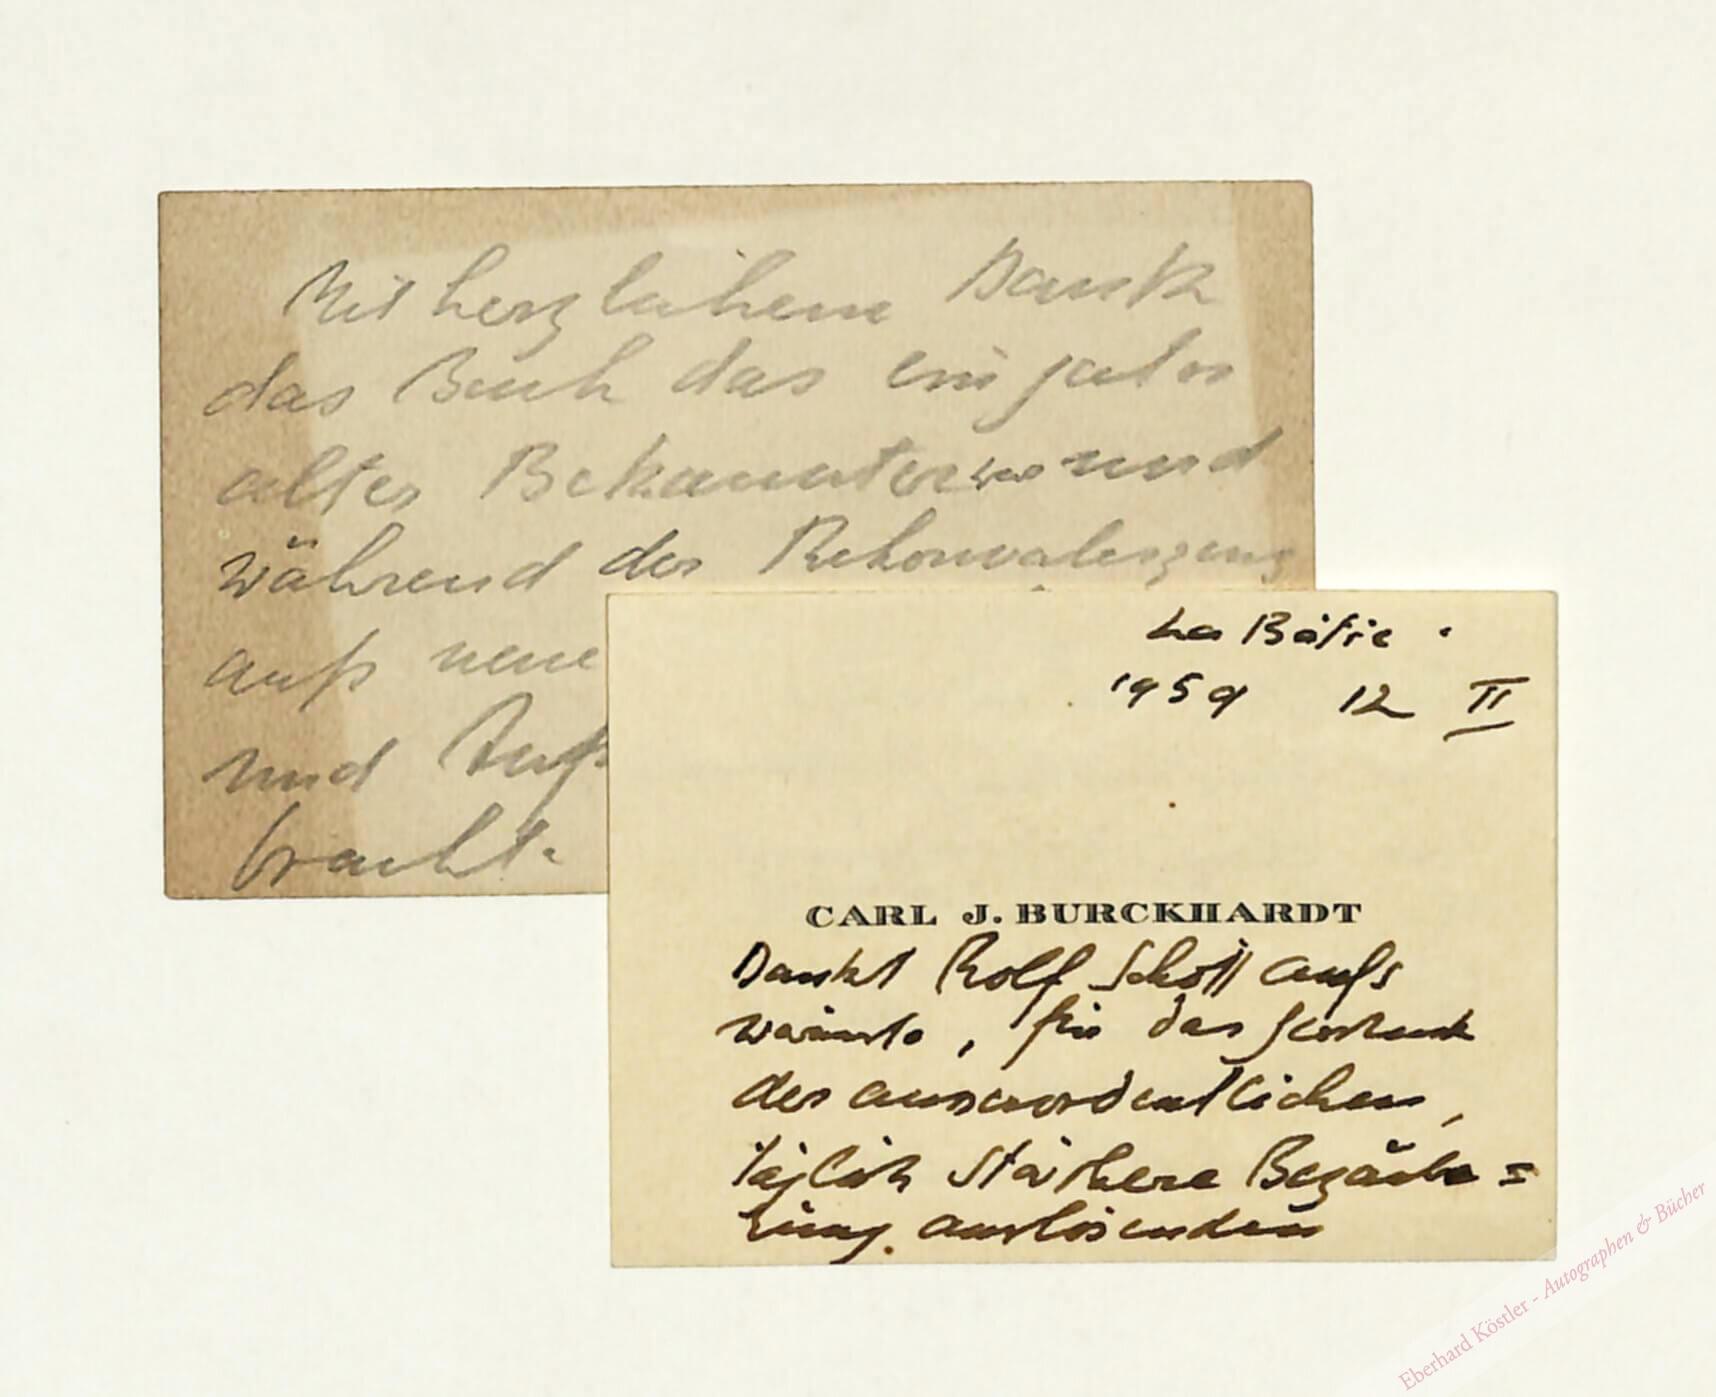 Mit herzlichem Dank
das Buch das ein guter
alter Bekannter war und
während der Rekonvaleszenz
aufs neue
und
bracht.
La Bâtie.
1959 12 II
CARL J. BURCKHARDT
Dankt Rolf Schott aufs
wärmste, für das Geschenk
der ausserordentlichen,
täglich stärkere Bezaube=
rung auslösenden
Eberhard Köstler - Autographen & Bücher